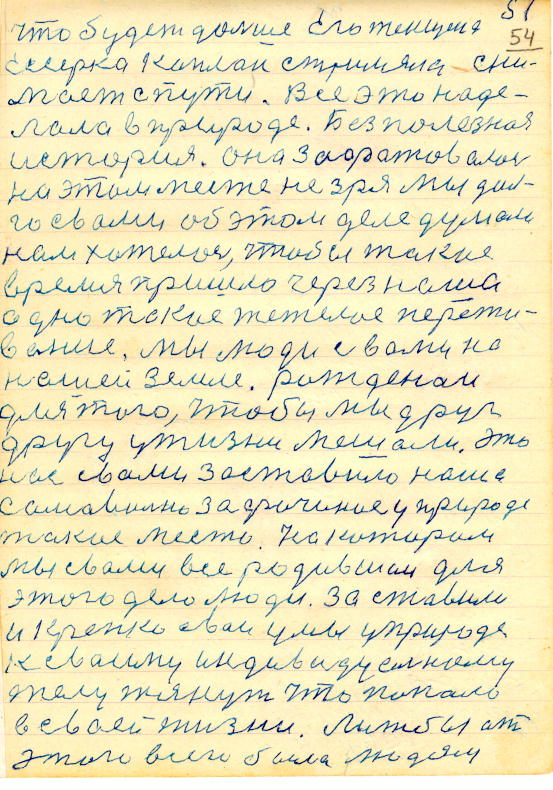 51
54
что будет дольше Его женщина
Есерка Каплан стриляла сни-
мает с пути. Все это наде-
лала в природе. Безполезная
история. Она зафратовалась
на этом месте не зря мы дол-
го свами об этом деле думали
нам хотелось, чтобы такое
время пришло через наша
одно такое тежелое пережи-
вание. Мы люди свами на
нашей земле. рожденаи
для того, чтобы мы друг
другу у жизни мешали. Это
нас свами заставило наша
самавольно зафрачиное у природе
такое место. На котором
мы свами все родившаи для
этого дело люди. Заставили
и крепко сваи умы у природе
к сваиму индивидуалному
телу тянут что попало
в сваей жизни. Лиж бы от
этого всего была людям